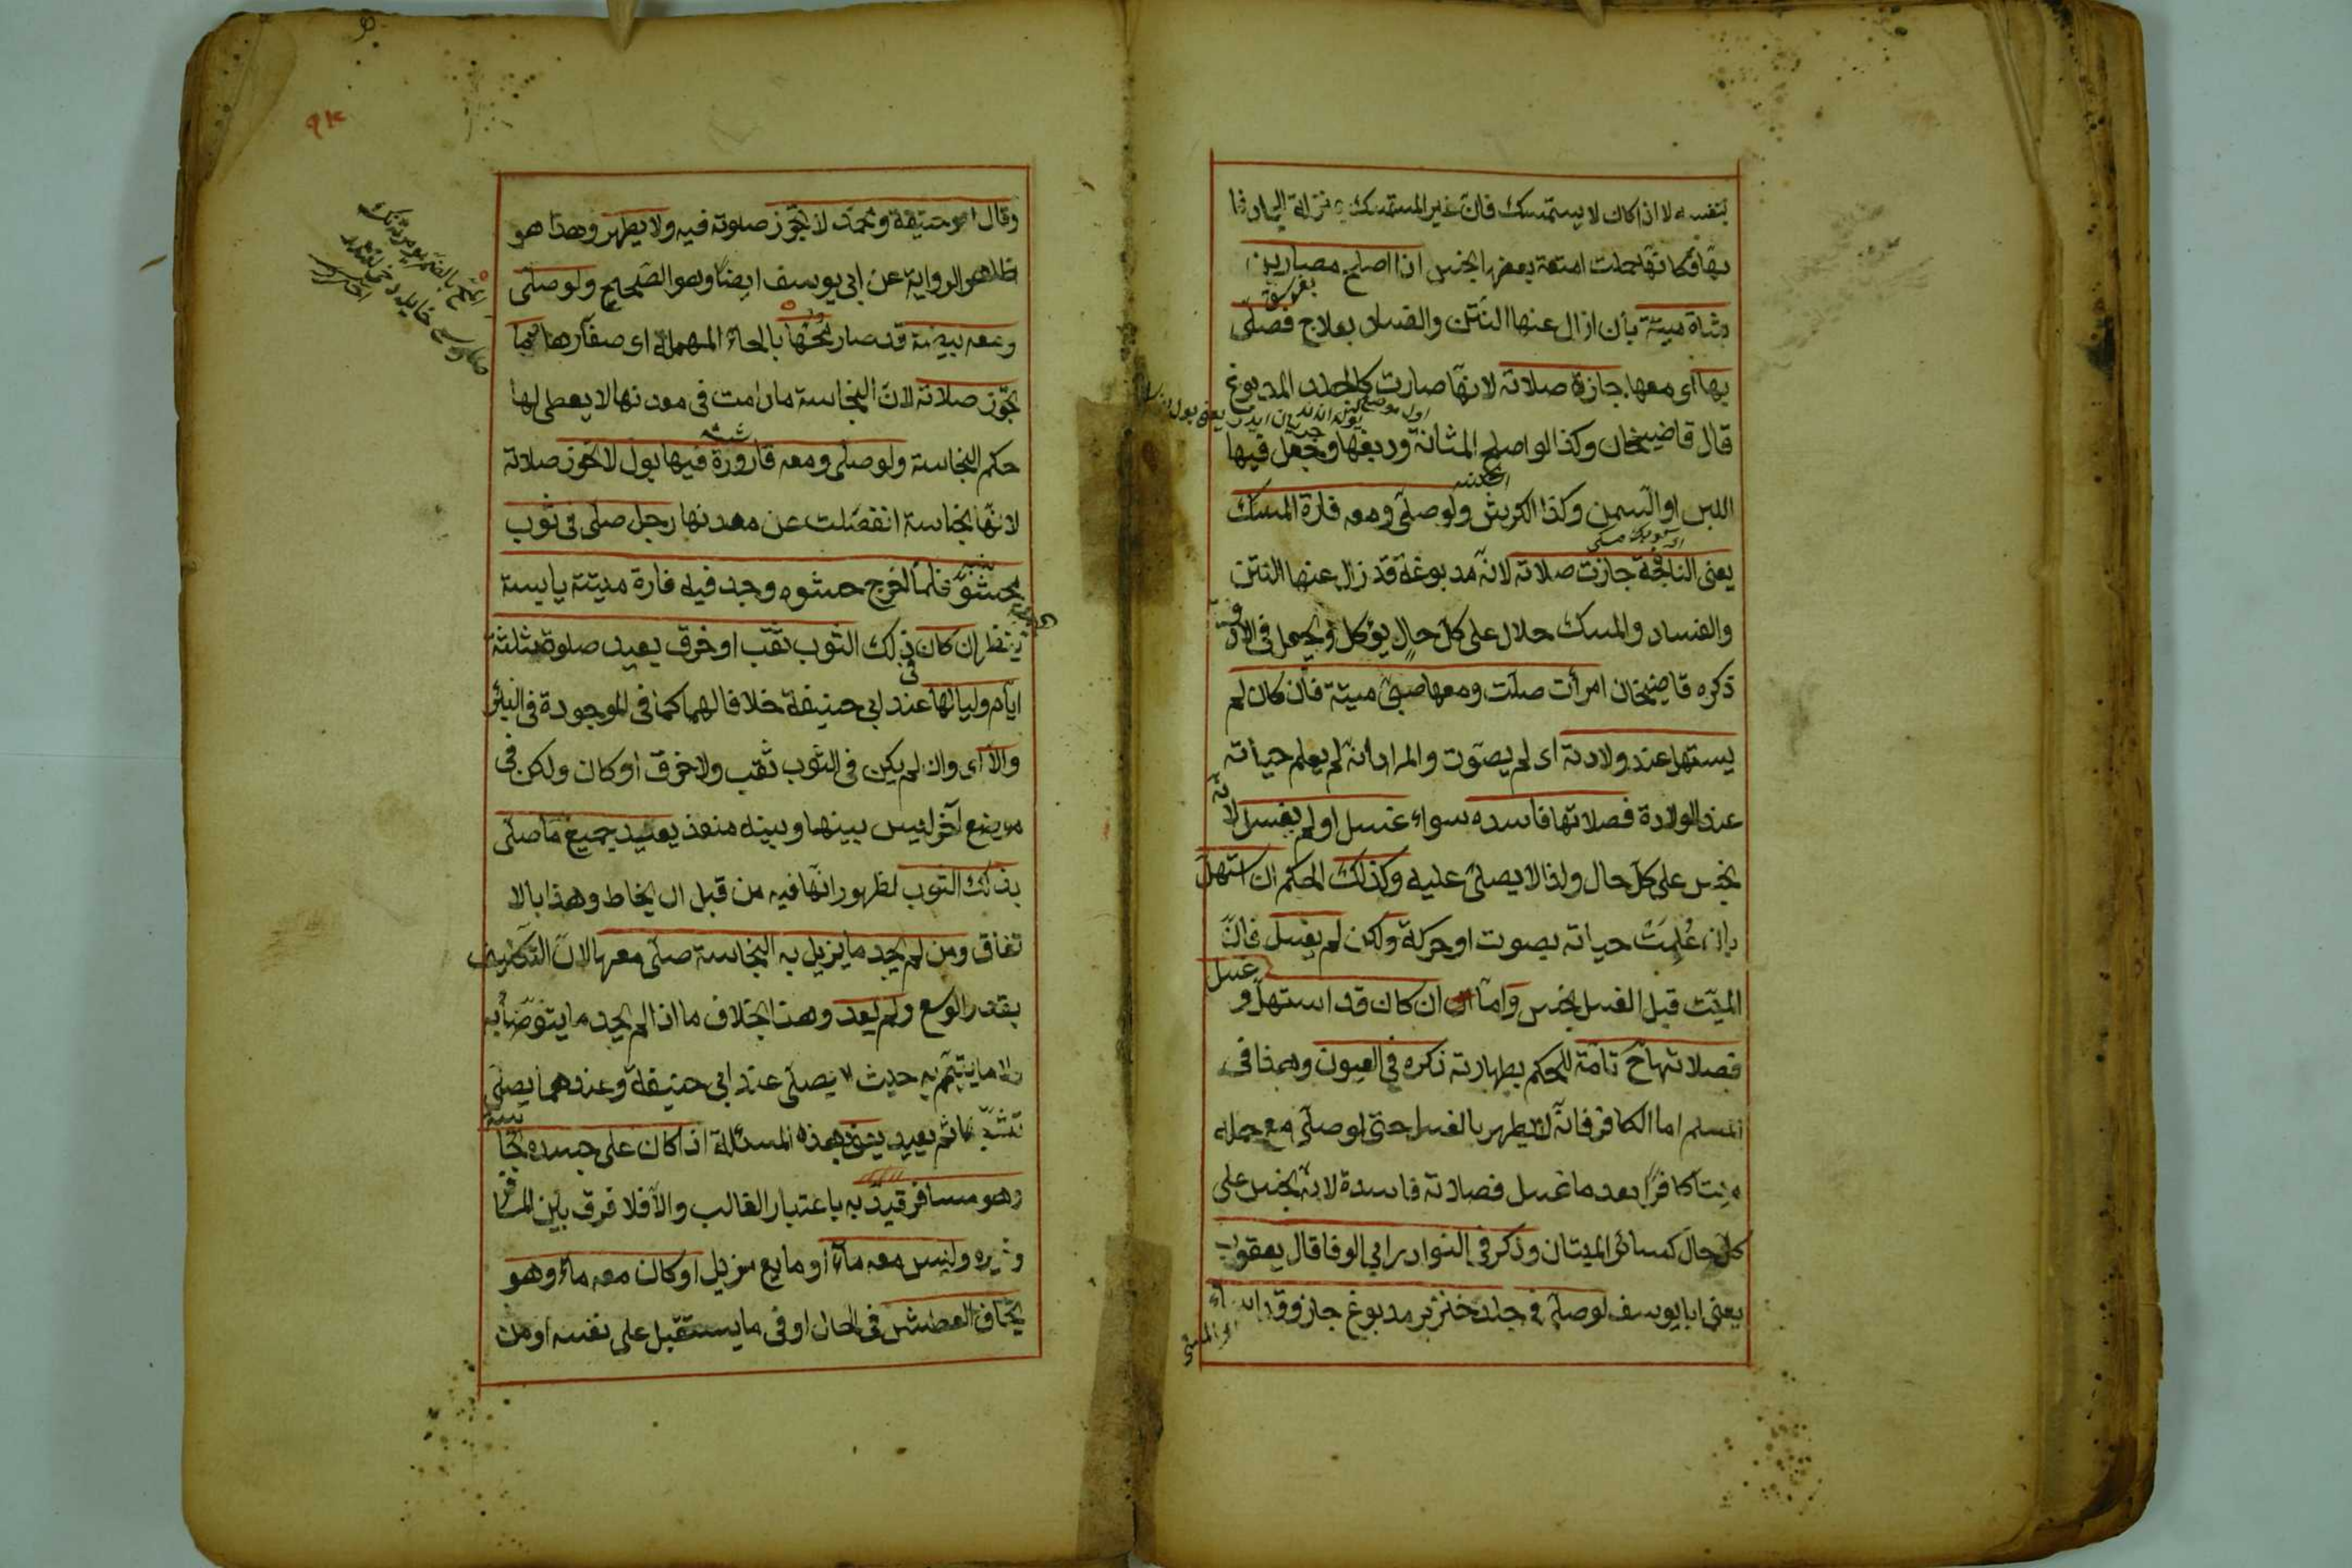 بنفسه لا اذا كان لا يستمسك فان غير المستمسك بمنزلة الجماد فا
بها فكانها حملت امتعة بعضها نجس اذا اصلح مصارين
شاة ميتة بان ازال عنها النتن والفساد بعلاج فصلى
بها اى معها جازة صلاته لانها صارت كالجلد المدبوغ
قال قاضيخان وكذا لو اصلح المثانة ودبغها وجعل فيها
اللبن او السمن وكذا الكرش ولو صلى ومعه فارة المسك
يعنى النافجة جازت صلاته لانه مدبوغة قد زال عنها النتن
والفساد والمسك حلال على كل حال يؤكل ويجعل فى الادوية
ذكره قاضيخان امرأت صلت ومعها صبى ميتة فان كان لم
يستهل عند ولادته اى لم يصوت والمراد انه لم يعلم حياته
عند الولادة فصلاتها فاسده سواء غسل او لم يغسل لانه
نجس على كل حال ولذا لا يصلى عليه وكذلك الحكم ان استهل
بان عُلِمَتْ حياته بصوت او حركة ولكن لم يغسل فانّ
الميّت قبل الغسل نجس وامّا ان كان قد استهل و غسل
فصلاتها ح تامّة للحكم بطهارته ذكره فى العيون وهذا فى
المسلم اما الكافر فانّه لا يطهر بالغسل حتى لو صلى مع حمله
ميتا كافرًا بعد ما غسل فصلاته فاسدة لانه نجس على
كل حال كسائر الميتان وذكر فى النوادر ابى الوفا قال يعقوب
يعنى ابا يوسف لو صلى فى جلد خنزير مدبوغ جاز وقد اساء
وقال ابو حنيفة ومحمد لا تجوز صلوته فيه ولا يطهر وهذا هو
ظاهر الرواية عن ابى يوسف ايضًا وهو الصّحيح ولو صلى
ومعه بيضة قد صار محّها بالحاء المهملة اى صفارها دما
تجوز صلاته لانّ النجاسة ما دامت فى معدنها لا يعطى لها
حكم النجاسة ولو صلى ومعه قارورة فيها بول لا تجوز صلاته
لانّها نجاسة انفصلت عن معدنها رجل صلى فى ثوب
محشوّ فلما اخرج حشوه وجد فيه فارة ميتة يابسة
ينظر ان كان فى ذلك الثوب ثقب او خرق يعيد صلوة ثلثة
ايّام ولياليها عند ابى حنيفة خلافا لهما كما فى الموجودة فى البئر
والاّ اى وان لم يكن فى الثوب ثقب ولا خرق او كان ولكن فى
موضع آخر ليس بينها وبينه منفذ يعيد جميع ما صلى
بذلك الثوب لظهور انّها فيه من قبل ان يخاط وهذا بالا
تفاق ومن لم يجد ما يزيل به النجاسة صلى معها لانّ التكليف
بقدر الوسع ولم يعد وهذا بخلاف ما اذا لم يجد ما يتوضأ به
ولا ما يتيمّم به حيث لا يصلى عند ابى حنيفة وعندهما يصلى
تشبّها ثم يعيد يعنى هذه المسئلة اذا كان على جسده نجاسة
وهو مسافر قيد به باعتبار الغالب والاّ فلا فرق بين المسافر
وغيره وليس معه ماء او مايع مزيل او كان معه ماء وهو
يخاف العطش فى الحال او فى ما يستقبل على نفسه او من